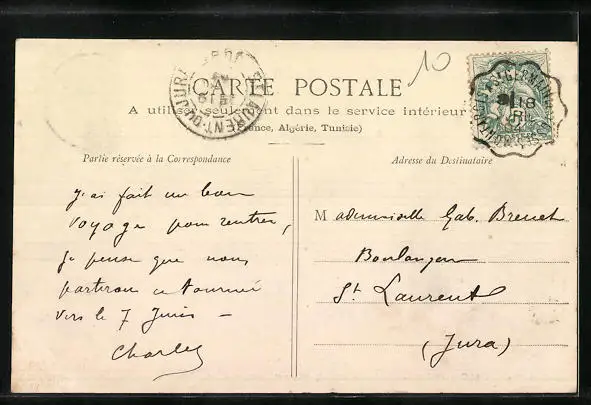 10
CARTE POSTALE
A utiliser seulement dans le service intérieur
(France, Algérie, Tunisie)
Partie réservée à la Correspondance
Adresse du Destinataire
J'ai fait un bon
voyage pour rentrer,
je pense que nous
partirons en tournée
vers le 7 Juin –
Charles
Mademoiselle Gab. Brenet
Boulanger
St Laurent
(Jura)